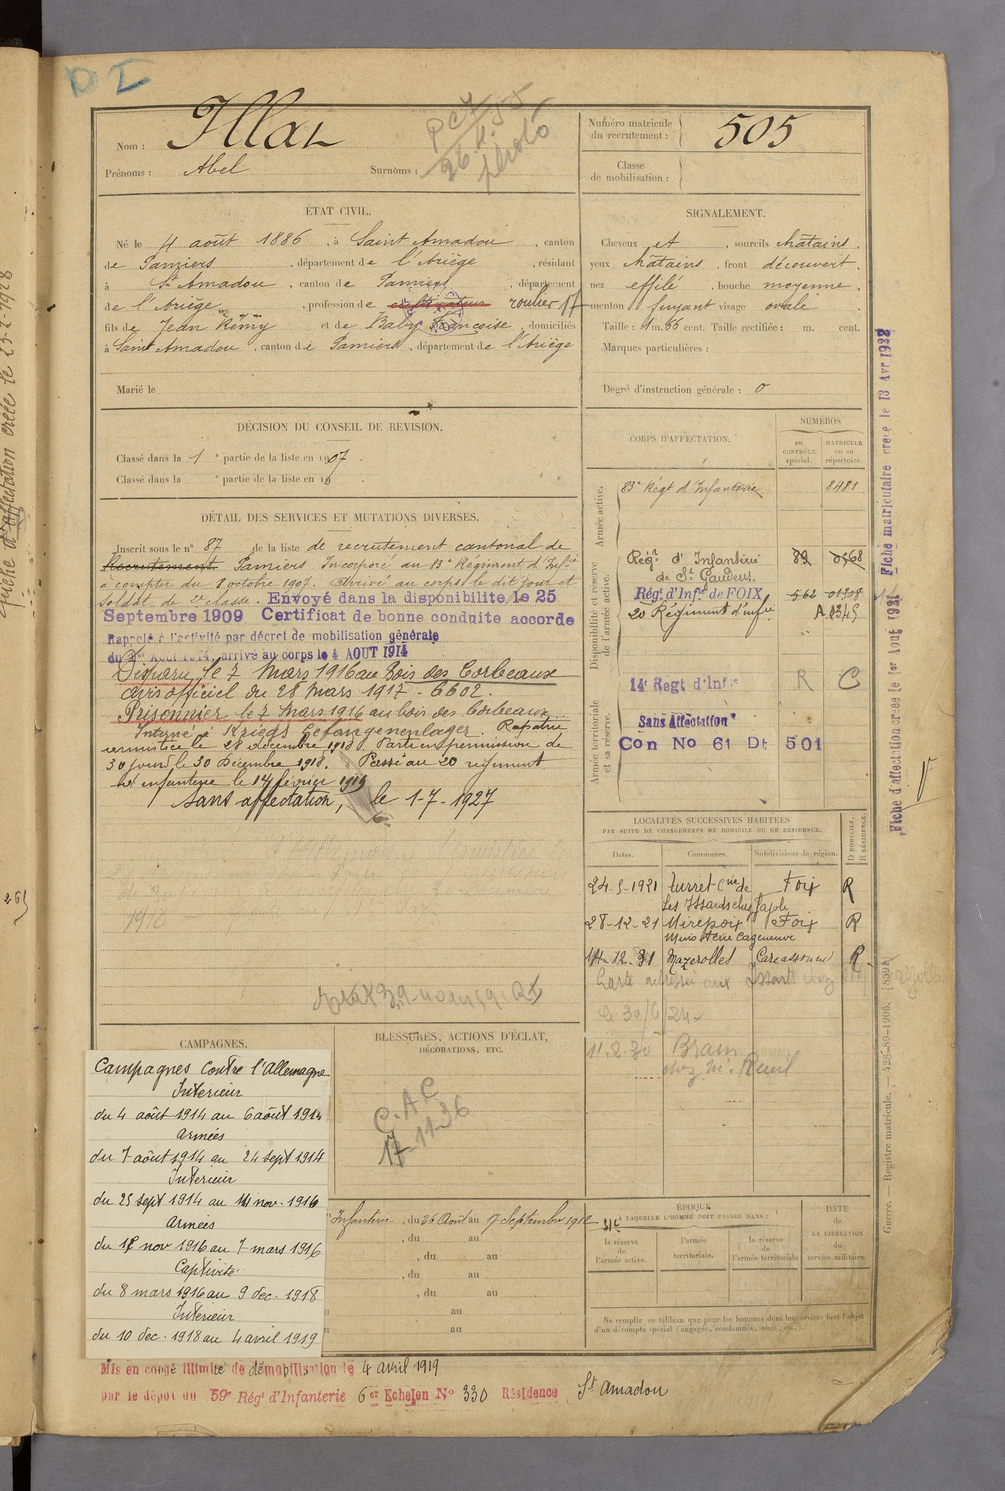 D I
Nom : Illaz
Prénoms : Abel Surnoms :
PC 7
26.11.55
photo
Numéro matricule
du recrutement : 505
Classe
de mobilisation :
ÉTAT CIVIL.
Né le 4 août 1886, à Saint Amadou, canton
de Pamiers, département de l'Ariège, résidant
à St Amadou, canton de Pamiers, département
de l'Ariège, profession de cultivateur roulier 17
fils de Jean Rémy et de Baby Françoise, domiciliés
à Saint Amadou, canton de Pamiers, département de l'Ariège
Marié le
SIGNALEMENT.
Cheveux et, sourcils châtains,
yeux châtains, front découvert,
nez effilé, bouche moyenne,
menton fuyant visage ovale.
Taille : 1m.66 cent. Taille rectifiée : m. cent.
Marques particulières :
Degré d'instruction générale : 0
DÉCISION DU CONSEIL DE RÉVISION.
Classé dans la 1e partie de la liste en 1907.
Classé dans la e partie de la liste en 19
DÉTAIL DES SERVICES ET MUTATIONS DIVERSES.
Inscrit sous le n° 87 de la liste de recrutement cantonal de
Recrutement. Pamiers Incorporé au 83e Régiment d'Infie
à compter du 8 octobre 1907. Arrivé au corps le dit jour et
soldat de 2e classe. Envoyé dans la disponibilité, le 25
Septembre 1909 Certificat de bonne conduite accordé
Rappelé à l'activité par décret de mobilisation générale
du Août 1914, arrivé au corps le 4 AOUT 1914
Disparu le 7 Mars 1916 au Bois des Corbeaux
avis officiel du 28 Mars 1917 - 6602.
Prisonnier le 7 Mars 1916 au bois des Corbeaux
Interné à Kriegs Gefangenenlager. Rapatrié
armistice le 18 décembre 1918. Parti en permission de
30 jours le 30 Décembre 1918. Passé au 20 régiment
d'infanterie le 14 février 1919
Sans affectation, le 1-7-1927
CORPS D'AFFECTATION.
NUMÉROS
au
CONTRÔLE
spécial.
MATRICULE
ou au
répertoire.
Armée active.
83e Régt d'Infanterie 8481
Disponibilité et réserve
de l'armée active.
Régt d'Infanterie
de St Gaudens. 83 0568
Régt d'Infie de FOIX 562 01908
20 Régiment d'infie A.2345
Armée territoriale
et sa réserve.
14e Regt d'Infie R C
Sans Affectation
Con No 61 Dt 501
LOCALITÉS SUCCESSIVES HABITÉES
PAR SUITE DE CHANGEMENTS DE DOMICILE OU DE RÉSIDENCE.
Dates. Communes. Subdivisions de région. D DOMICILE. R RÉSIDENCE.
24-5-1921 Foix R
Les Issards chez
28-12-21 Mirepoix Foix R
14-12-31 Mazerolles Carcassonne R
Carte adressée aux Issards chez
le 30/6/24
11.2.30 Bram
chez Mr.
CAMPAGNES.
Campagnes contre l'Allemagne
Intérieur
du 4 août 1914 au 6 août 1914
Armées
du 7 août 1914 au 24 sept 1914
Intérieur
du 25 sept 1914 au 14 nov. 1916
Armées
du 15 nov 1916 au 7 mars 1916
Captivité
du 8 mars 1916 au 9 dec. 1918
Intérieur
du 10 dec. 1918 au 4 avril 1919
BLESSURES, ACTIONS D'ÉCLAT,
DÉCORATIONS, ETC.
C.A C
17-11-36
Infanterie, du 26 Août au 17 Septembre 1912
, du au
, du au
, du au
, du au
au
au
ÉPOQUE
À LAQUELLE L'HOMME DOIT PASSER DANS :
la réserve
de
l'armée active.
l'armée
territoriale.
la réserve
de
l'armée territoriale
DATE
de
LA LIBÉRATION
du
service militaire.
Ne remplir ce tableau que pour les hommes dont les services font l'objet
d'un décompte spécial (engagés, condamnés, omis, etc.)
Mis en congé illimité de démobilisation le 4 avril 1919
par le dépôt du 59e Régt d'Infanterie 6er Echelon No 330 Résidence St Amadou
Fiche matriculaire créée le 13 Avr 1928
Fiche d'affectation créée le 1er Août 1921
Guerre. — Registre matricule. — 428-89-1906. [8591]
Fiche d'affectation créée le 25-2-1928
265